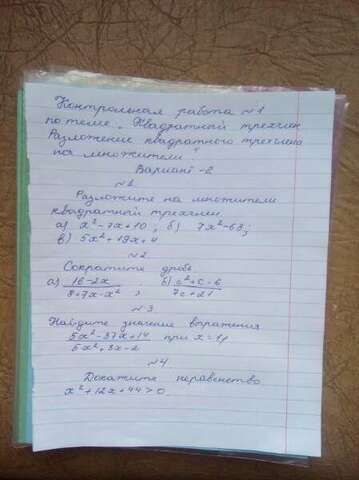 Контрольная работа №1
по теме „Квадратный трехчлен
Разложение квадратного трехчлена
на множители"
Вариант-2
№1
Разложите на множители
квадратный трехчлен
а) x²-7x+10; б) 7x²-63;
в) 5x²+19x+4
№2
Сократите дробь
а) 16-2x / 8+7x-x² ; б) c²+c-6 / 7c+21
№3
Найдите значение выражения
5x²-37x+14 / 5x²+3x-2 при x=
№4
Докажите неравенство
x²+12x+44>0